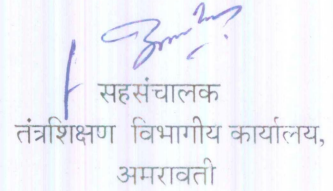 सहसंचालक
तंत्रशिक्षण विभागीय कार्यालय,
अमरावती